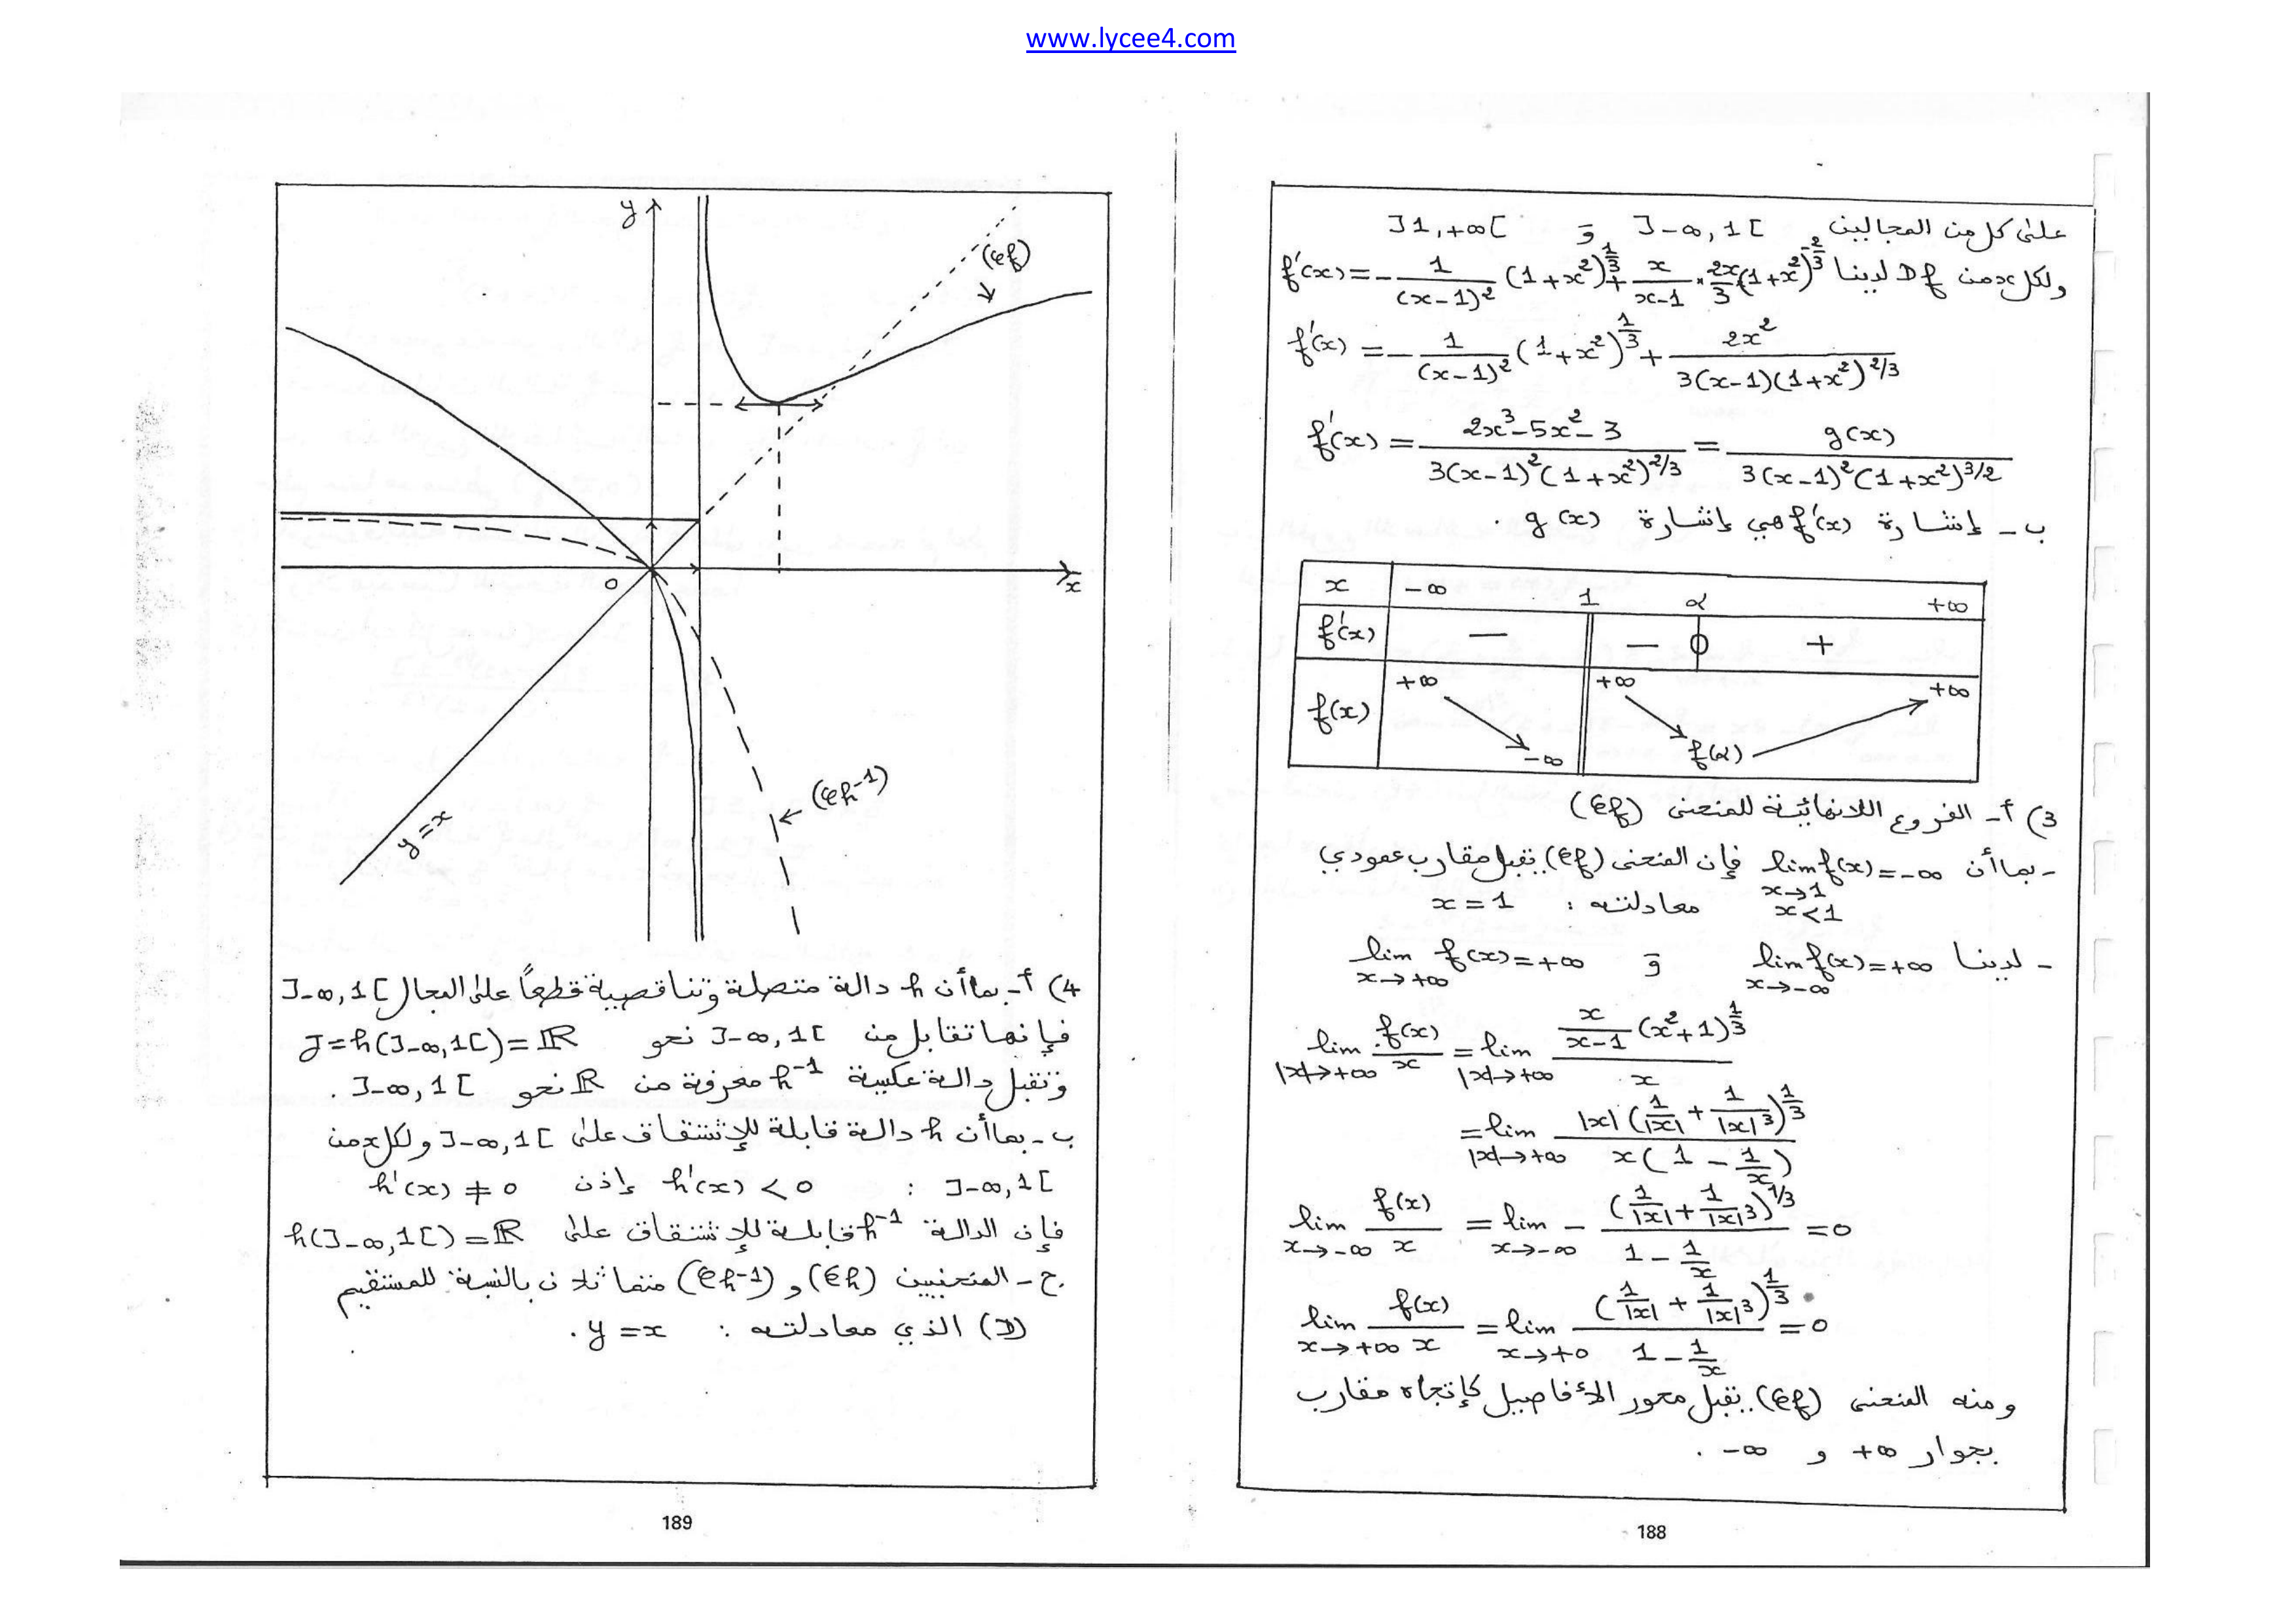 www.lycee4.com
على كل من المجالين ]-∞, 1[ و ]1, +∞[
ولكل x من Df لدينا f'(x) = -1/(x-1)² (1+x²)^(1/3) + x/(x-1) × 2x/3 (1+x²)^(-2/3)
f'(x) = -1/(x-1)² (1+x²)^(1/3) + 2x²/(3(x-1)(1+x²)^(2/3))
f'(x) = (2x³-5x²-3)/(3(x-1)²(1+x²)^(2/3)) = g(x)/(3(x-1)²(1+x²)^(3/2))
ب - إشارة f'(x) هي إشارة g(x) .
x -∞ 1 α +∞
f'(x) − − 0 +
f(x) +∞ -∞ +∞ f(α) +∞
3) أ- الفروع اللانهائية للمنحنى (𝒞f)
- بما أن lim f(x) = -∞ فإن المنحنى (𝒞f) يقبل مقارب عمودي
x→1
x<1 معادلته : x = 1
- لدينا lim f(x) = +∞ و lim f(x) = +∞
x→-∞ x→+∞
lim |x|→+∞ f(x)/x = lim |x|→+∞ (x/(x-1) (x²+1)^(1/3))/x
= lim |x|→+∞ |x|(1/|x| + 1/|x|³)^(1/3) / x(1 - 1/x)
lim x→-∞ f(x)/x = lim x→-∞ - (1/|x| + 1/|x|³)^(1/3) / (1 - 1/x) = 0
lim x→+∞ f(x)/x = lim x→+0 (1/|x| + 1/|x|³)^(1/3) / (1 - 1/x) = 0
ومنه المنحنى (𝒞f) يقبل محور الأفاصيل كإتجاه مقارب
بجوار +∞ و -∞ .
188
y
(𝒞f)
x
o
(𝒞h⁻¹)
y=x
4) أ- بما أن h دالة متصلة وتناقصية قطعاً على المجال ]-∞, 1[
فإنها تقابل من ]-∞, 1[ نحو J = h(]-∞, 1[) = ℝ
وتقبل دالة عكسية h⁻¹ معرفة من ℝ نحو ]-∞, 1[ .
ب - بما أن h دالة قابلة للإشتقاق على ]-∞, 1[ ولكل x من
]-∞, 1[ : h'(x) < 0 إذن h'(x) ≠ 0
فإن الدالة h⁻¹ قابلة للإشتقاق على h(]-∞, 1[) = ℝ
ج - المنحنيين (𝒞h) و (𝒞h⁻¹) متماثلان بالنسبة للمستقيم
(D) الذي معادلته : y = x .
189